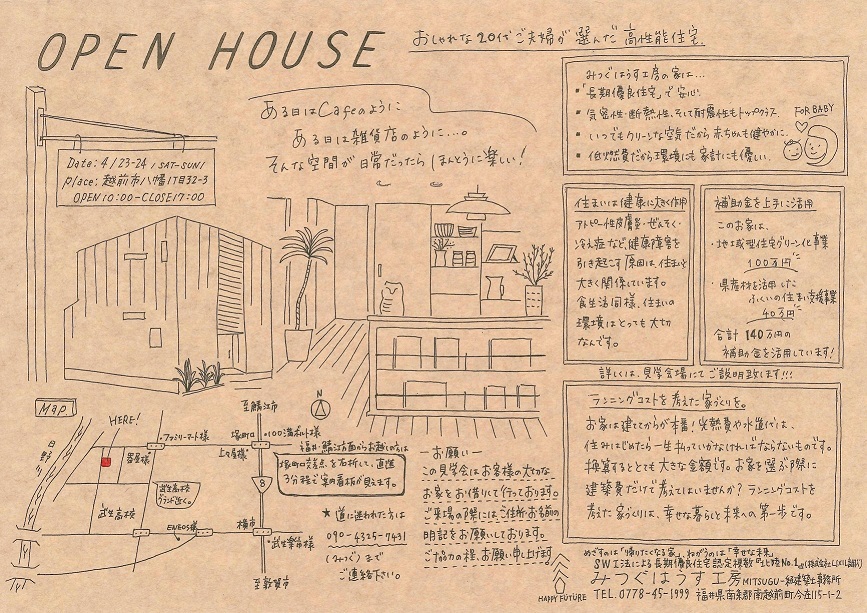 OPEN HOUSE
おしゃれな20代ご夫婦が選んだ高性能住宅.
ある日はCafeのように
ある日は雑貨店のように…。
そんな空間が日常だったら ほんとうに楽しい!
Date: 4/23-24 / SAT-SUN/
place: 越前市八幡1丁目32-3
OPEN 10:00-CLOSE 17:00
みつぐはうす工房の家は…
・「長期優良住宅」で安心.
・気密性・断熱性、そして耐震性もトップクラス.
・いつでもクリーンな空気だから赤ちゃんも健やかに.
・低燃費だから環境にも家計にも優しい.
FOR BABY
住まいは健康に大きく作用
アトピー性皮膚炎・ぜんそく・
冷え症など、健康障害を
引き起こす原因は、住まいと
大きく関係しています。
食生活同様、住まいの
環境はとっても大切
なんです。
補助金を上手に活用
このお家は、
・地域型住宅グリーン化事業
100万円
・県産材を活用した
ふくいの住まい支援事業
40万円
合計 140万円の
補助金を活用しています!
詳しくは、見学会場にてご説明致します!!!
ランニングコストを考えた家づくりを。
お家は建ててからが本番!光熱費や水道代は、
住みはじめたら一生払っていかなければならないものです。
換算するととても大きな金額です。お家を選ぶ際に
建築費だけで考えてはいませんか?ランニングコストを
考えた家づくりは、幸せな暮らしと未来への第一歩です。
Map
HERE!
日野川
・ファミリーマート様
至鯖江市
塚町口
・100満ボルト様
上々屋様
武生高校
武生高校
グランド近く。
ENEOS様
横市
武生楽市様
至敦賀市
8
N
福井・鯖江方面からお越しの方は
塚町口交差点を右折して、直進
3分程で案内看板が見えます。
★道に迷われた方は
090-4325-7431
(みつぐ)まで
ご連絡下さい。
-お願い-
この見学会はお客様の大切な
お家をお借りして行っております。
ご来場の際にはご住所・お名前の
明記をお願いしております。
ご協力の程、お願い申し上げます
HAPPY FUTURE
めざすのは「帰りたくなる家」、ねがうのは「幸せな未来」
SW工法による長期優良住宅認定棟数『北陸No.1』(株式会社LIXIL調べ)
みつぐはうす工房 MITSUGU一級建築士事務所
TEL. 0778-45-1999 福井県南条郡南越前町今庄115-1-2